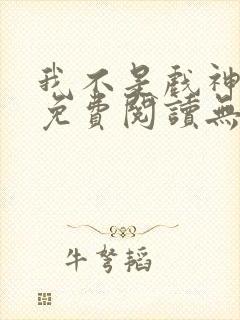 我不是戲神
免費閱讀無
牛弩韬